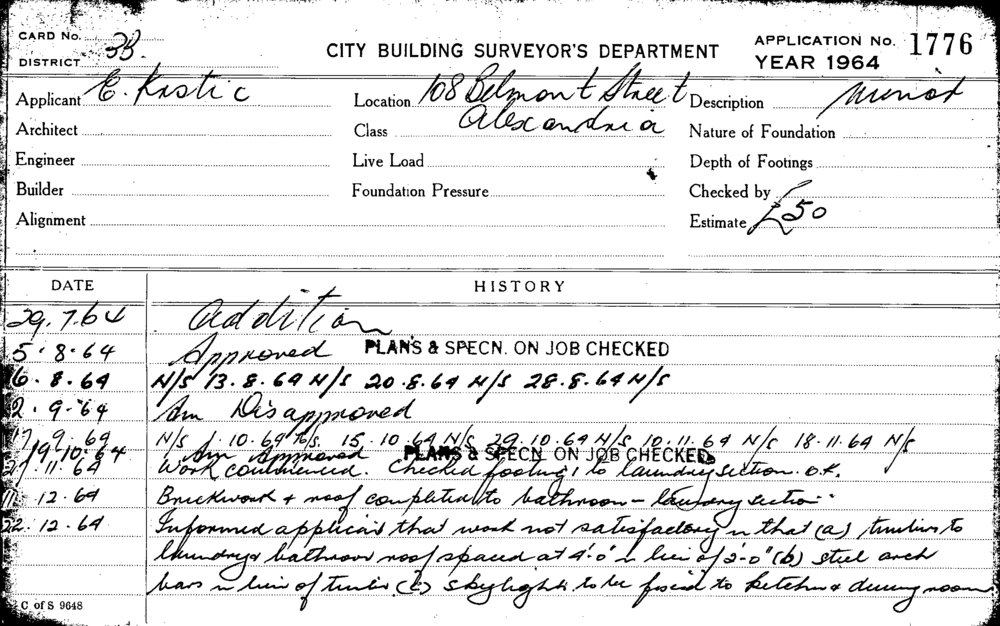 CARD No. 3B.
DISTRICT
CITY BUILDING SURVEYOR'S DEPARTMENT
APPLICATION No. 1776
YEAR 1964
Applicant E. Krstic
Location 108 Belmont Street
Alexandria
Description Minor
Architect
Class
Nature of Foundation
Engineer
Live Load
Depth of Footings
Builder
Foundation Pressure
Checked by
Alignment
Estimate £50
DATE HISTORY
29.7.64 Addition
5.8.64 Approved PLANS & SPECN. ON JOB CHECKED
6.8.64 N/S 13.8.64 N/S 20.8.64 N/S 28.8.64 N/S
2.9.64 Am Disapproved
17.9.64 N/S 1.10.64 N/S. 15.10.64 N/S 29.10.64 N/S 10.11.64 N/S 18.11.64 N/S
19.10.64 Am Approved PLANS & SPECN. ON JOB CHECKED
.11.64 Work commenced. Checked footings to laundry section. O.K.
.12.64 Brickwork & roof completed to bathroom - laundry section
22.12.64 Informed applicant that work not satisfactory in that (a) timbers to
laundry & bathroom roof spaced at 4'-0" in lieu of 2'-0" (b) steel arch
bars in lieu of timber (c) skylights to be fixed to kitchen & dining room
C of S 9648